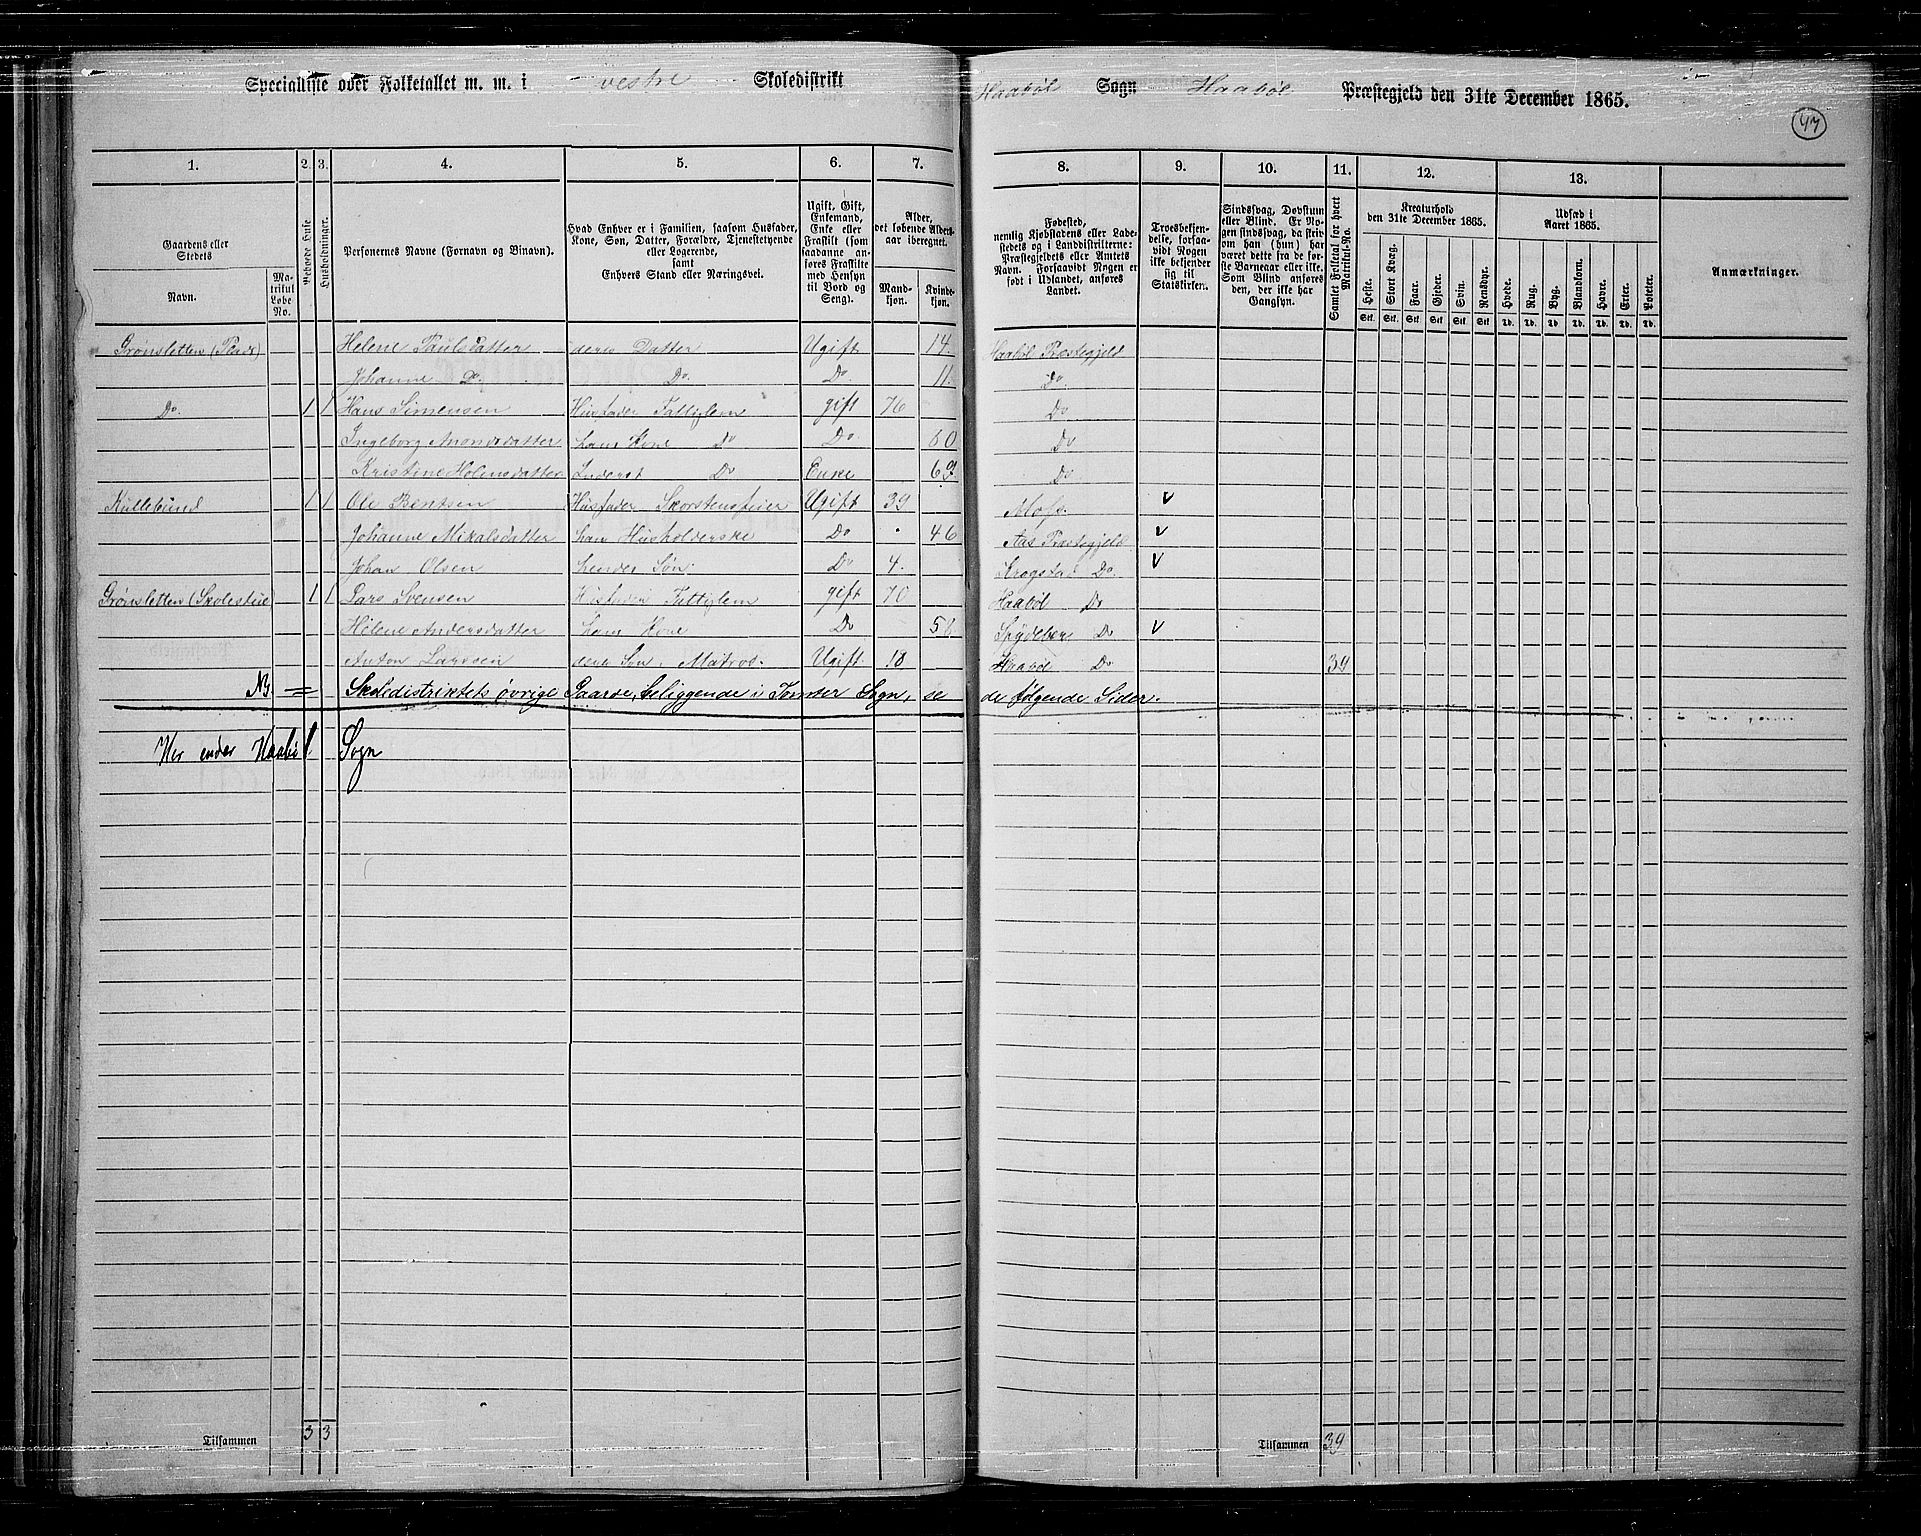 Specialliste over Folketallet m. m. i vestre Skoledistrikt Haabøl Sogn Haabøl Præstegjeld den 31te December 1865.
47
1. 2. 3. 4. 5. 6. 7. 8. 9. 10. 11. 12. 13.
Gaardens eller Stedets
Navn.
Matrikul Løbe No.
Beboede Huse
Husholdninger.
Personernes Navne (Fornavn og Binavn).
Hvad Enhver er i Familien, saasom Husfader, Kone, Søn, Datter, Forældre, Tjenestetyende eller Logerende, samt Enhvers Stand eller Næringsvei.
Ugift, Gift, Enkemand, Enke eller Fraskilt (som saadanne anføres Fraskilte med Hensyn til Bord og Seng).
Alder, det løbende Aldersaar iberegnet.
Mandkjøn. Kvindekjøn.
Fødested, nemlig Kjøbstadens eller Ladestedets og i Landdistrikterne: Præstegjeldets eller Amtets Navn. Forsaavidt Nogen er født i Udlandet, anføres Landet.
Troesbekjendelse, forsaavidt Nogen ikke bekjender sig til Statskirken.
Sindssvag, Døvstum eller Blind. Er Nogen sindssvag, da skrives om han (hun) har været dette fra de første Barneaar eller ikke. Som Blind anføres den, der ikke har Gangsyn.
Samlet Folketal for hvert Matrikul-No.
Kreaturhold den 31te December 1865.
Heste. Stort Kvæg. Faar. Gjeder. Svin. Rensdyr.
Udsæd i Aaret 1865.
Hvede. Rug. Byg. Blandkorn. Havre. Erter. Poteter.
Stk. Stk. Stk. Stk. Stk. Stk. Td. Td. Td. Td. Td. Td. Td.
Anmærkninger.
Helene Paulsdatter deres Datter Ugift 14. Haabøl Præstegjeld
Johanne Do. Do. Do. 11. Do.
Do. 1 1 Hans Simensen Husfader Fattiglem gift 76 Do
Ingeborg Amondsdatter hans Kone Do Do. 60 Do
Kristine Do Enke Do
1 1 Ole Bentsen Husfader Skorstensfeier Ugift 39 Moss. V
Johanne Mikalsdatter hans Husholderske Do 46 Aas Præstegjeld V
Johan Olsen hendes Søn. Do 4. Krogstad Do. V
Grønsletten (Skolestue 1 1 Lars Svensen Husfader Fattiglem gift 70 Haabøl Do
Helene Andersdatter hans Kone Do Spydeberg Do V
Anton Larssen deres Søn, Matros. Ugift. 18 Haabøl Do 39
NB = Skoledistriktets øvrige Gaarde, beliggende i Tomter Sogn, se de følgende Sider.
Her ender Haabøl Sogn
Tilsammen 3 3 Tilsammen 39